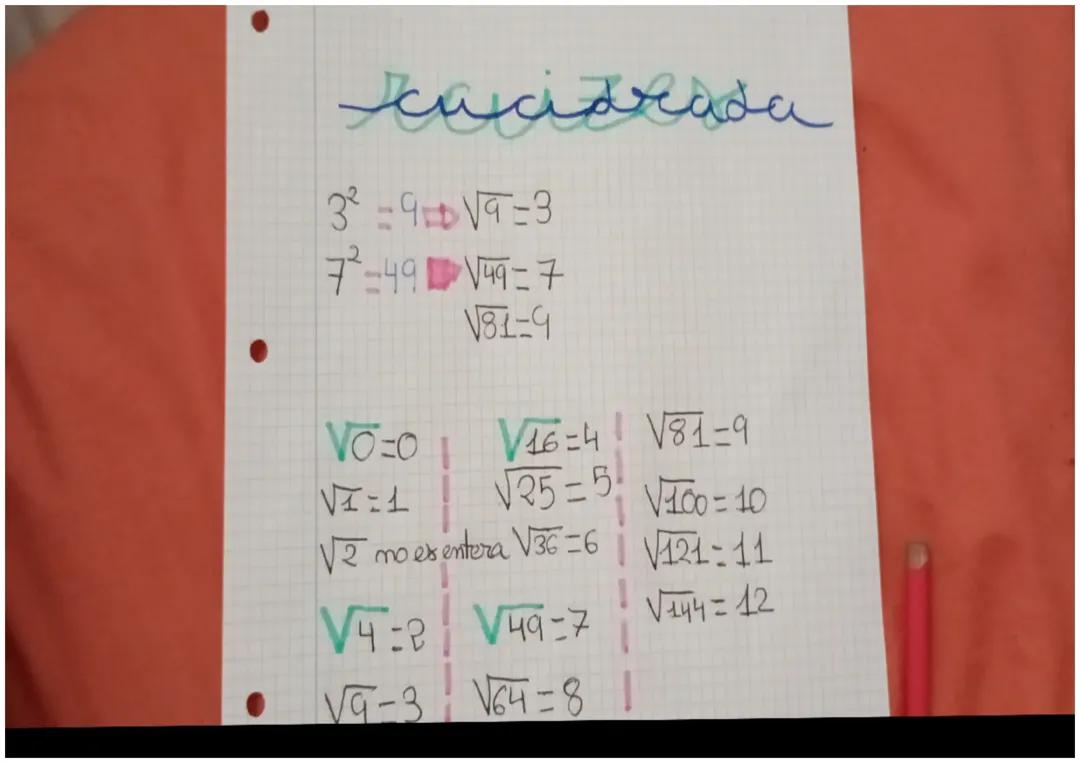 cuadrada
3² = 9 ⇒ √9 = 3
7² = 49 ⇒ √49 = 7
√81 = 9
√0 = 0
√1 = 1
√2 no es entera
√4 = 2
√9 = 3
√16 = 4
√25 = 5
√36 = 6
√49 = 7
√64 = 8
√81 = 9
√100 = 10
√121 = 11
√144 = 12